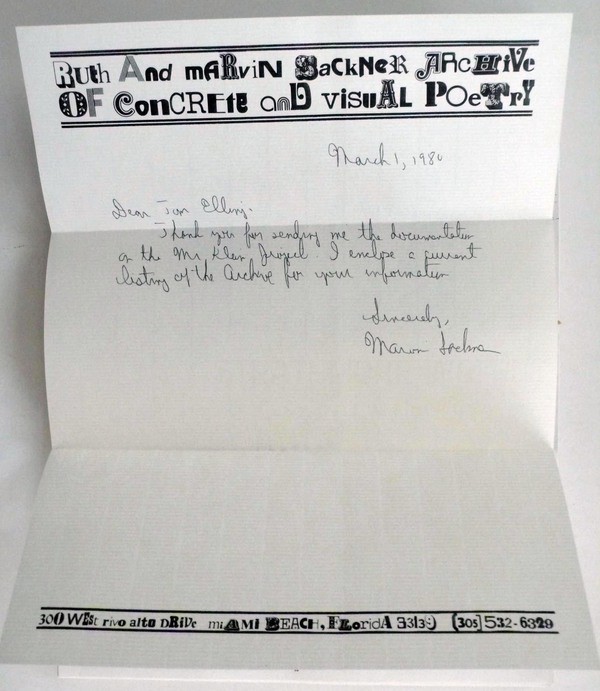 Ruth And maRviN SackNeR ArcHiVe
OF ConCREte anD visuAL POeTrY
March 1, 1980
Dear Tom Elling:
Thank you for sending me the documentation
on the Mr. Klein Project. I enclose a current
listing of the Archive for your information
Sincerely,
Marvin Sackner
300 WEst rivo alto DRiVe miAMi BEACH, FLoridA 33139 (305) 532-6329